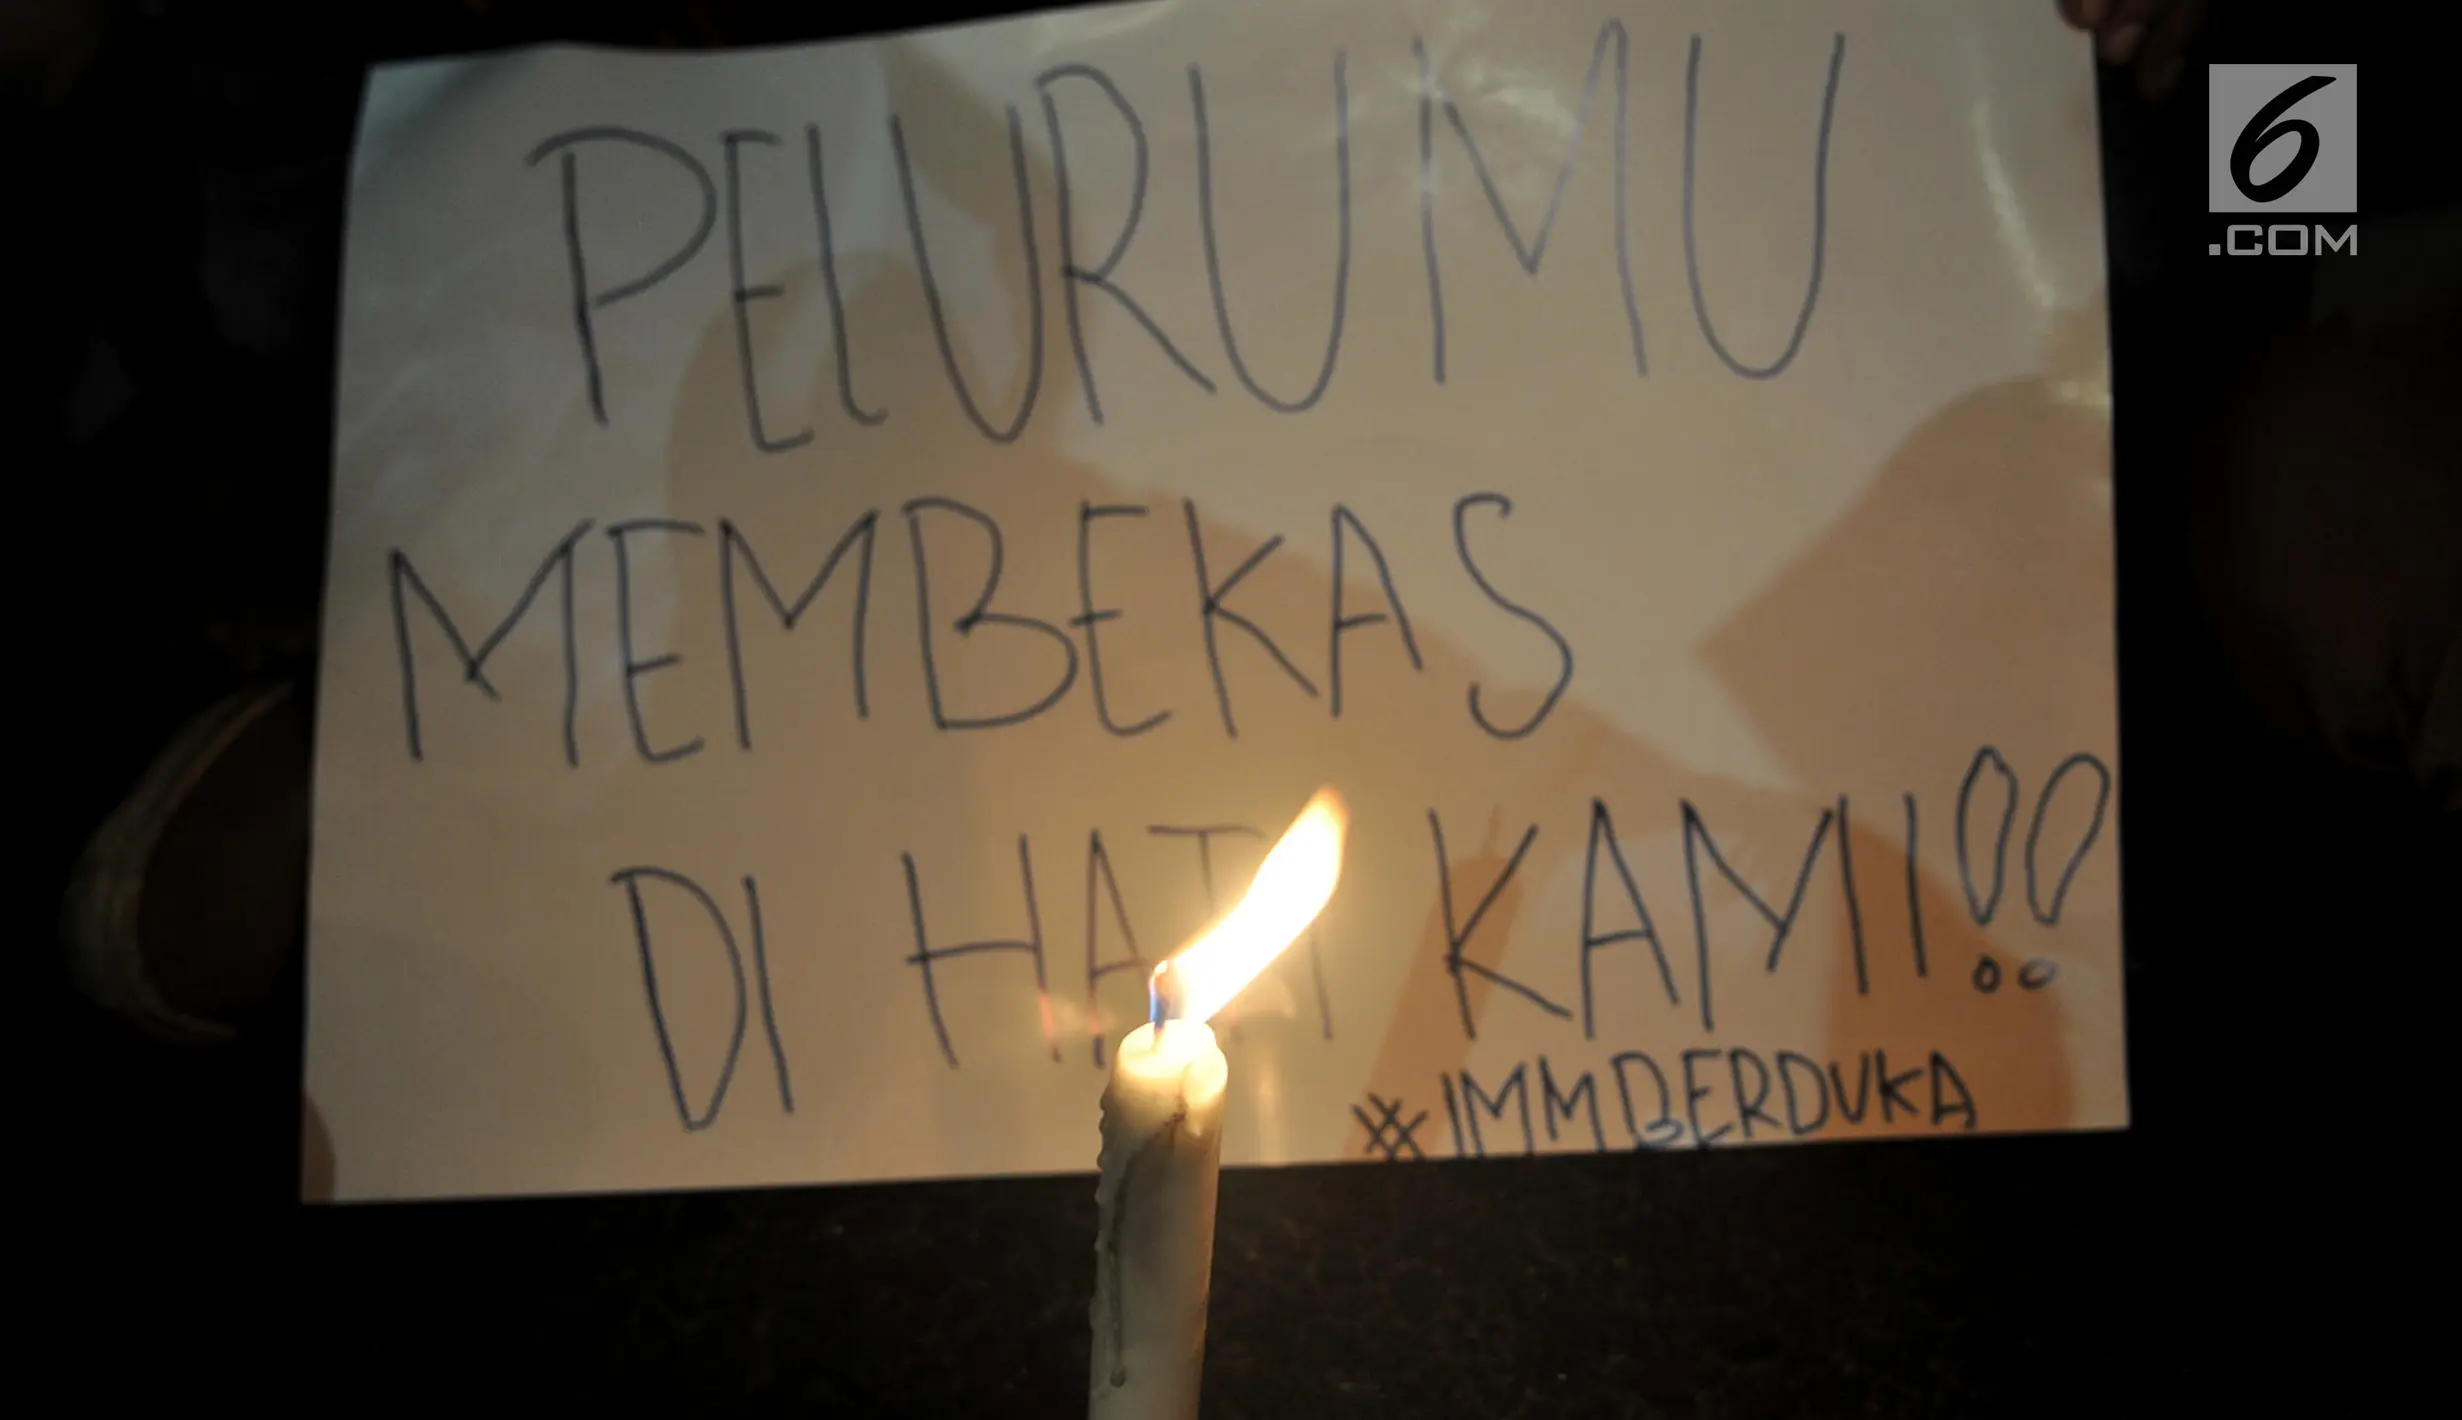 PELURUMU
MEMBEKAS
DI HATI KAMI!!
#IMMBERDUKA
6
.COM